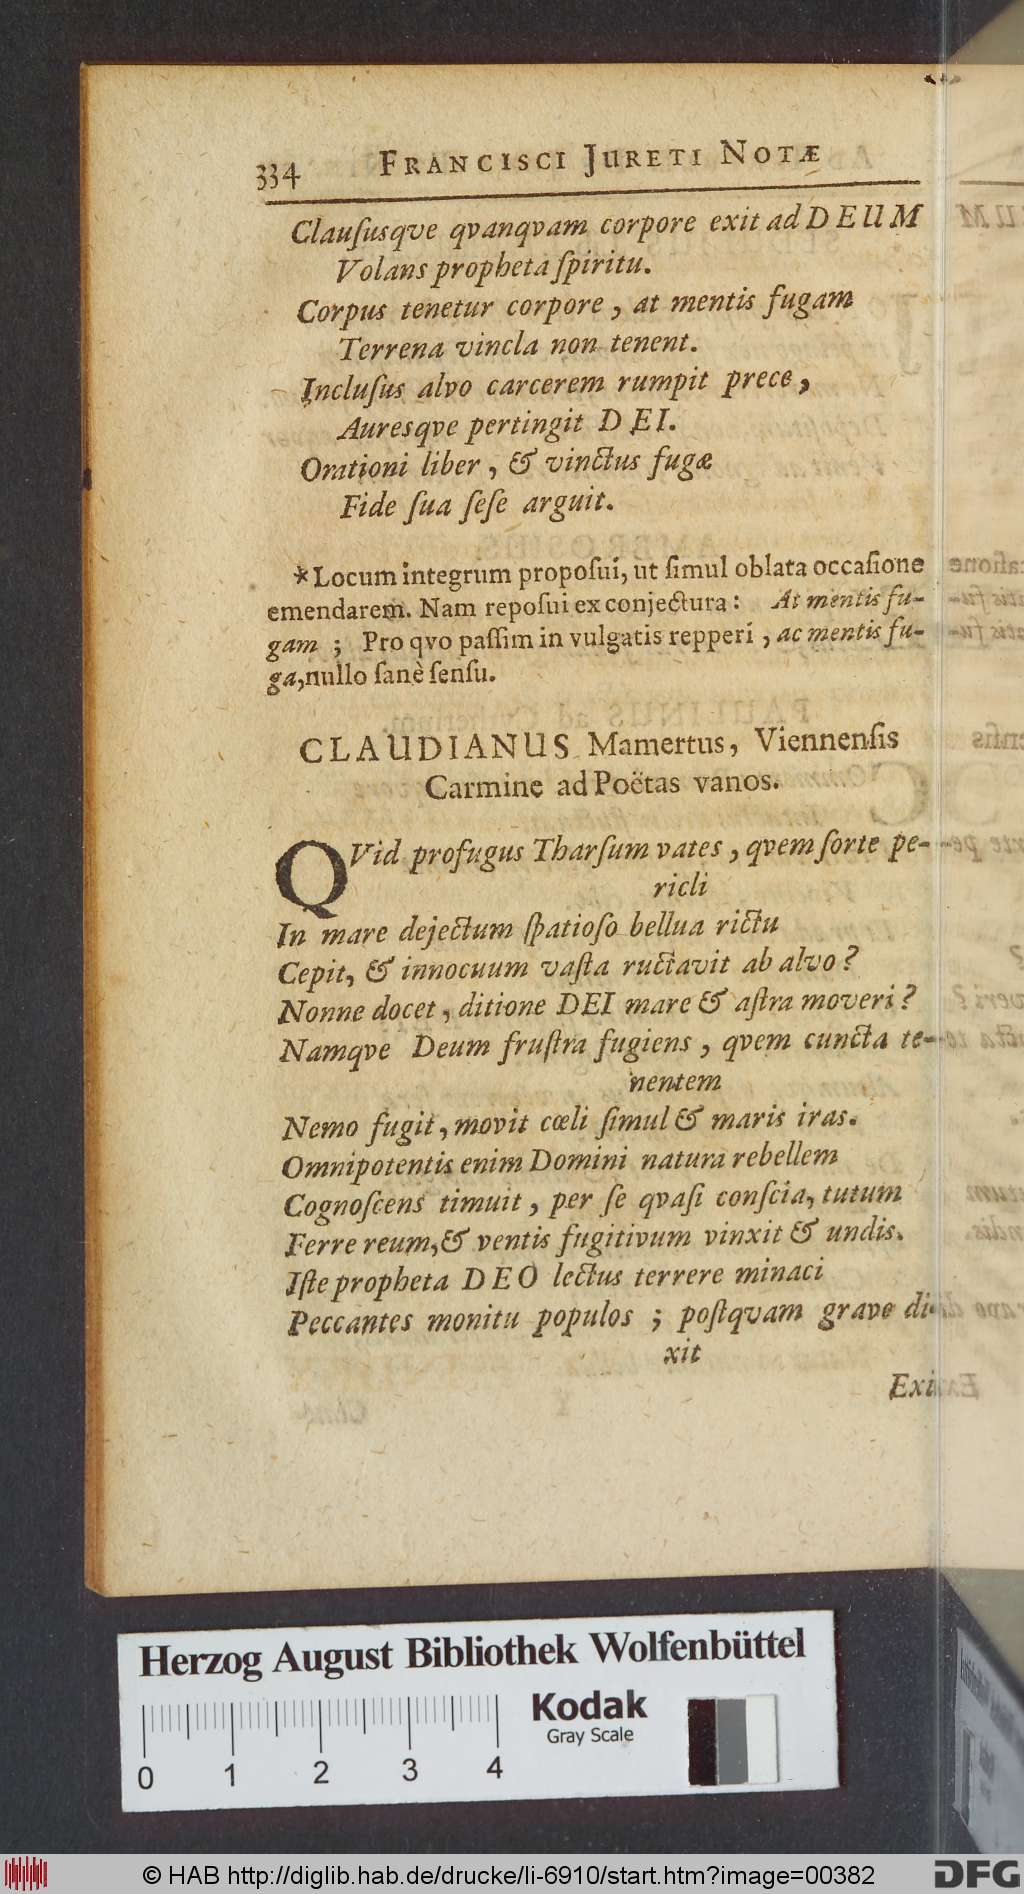 334 FRANCISCI JURETI NOTÆ
Clauſusqve qvanqvam corpore exit ad DEUM
Volans propheta ſpiritu.
Corpus tenetur corpore, at mentis fugam
Terrena vincla non tenent.
Incluſus alvo carcerem rumpit prece,
Auresqve pertingit DEI.
Orationi liber, & vinctus fugæ
Fide ſua ſeſe arguit.
*Locum integrum propoſui, ut ſimul oblata occaſione
emendarem. Nam repoſui ex conjectura: At mentis fu-
gam ; Pro qvo paſſim in vulgatis repperi, ac mentis fu-
ga, nullo ſanè ſenſu.
CLAUDIANUS Mamertus, Viennenſis
Carmine ad Poëtas vanos.
QVid profugus Tharſum vates, qvem ſorte pe-
ricli
In mare dejectum ſpatioſo bellua rictu
Cepit, & innocuum vaſta ructavit ab alvo?
Nonne docet, ditione DEI mare & aſtra moveri?
Namqve Deum fruſtra fugiens, qvem cuncta te-
nentem
Nemo fugit, movit cœli ſimul & maris iras.
Omnipotentis enim Domini natura rebellem
Cognoſcens timuit, per ſe qvaſi conſcia, tutum
Ferre reum, & ventis fugitivum vinxit & undis.
Iſte propheta DEO lectus terrere minaci
Peccantes monitu populos ; poſtqvam grave di-
xit
Exi
Herzog August Bibliothek Wolfenbüttel
Kodak
Gray Scale
0 1 2 3 4
© HAB http://diglib.hab.de/drucke/li-6910/start.htm?image=00382
DFG